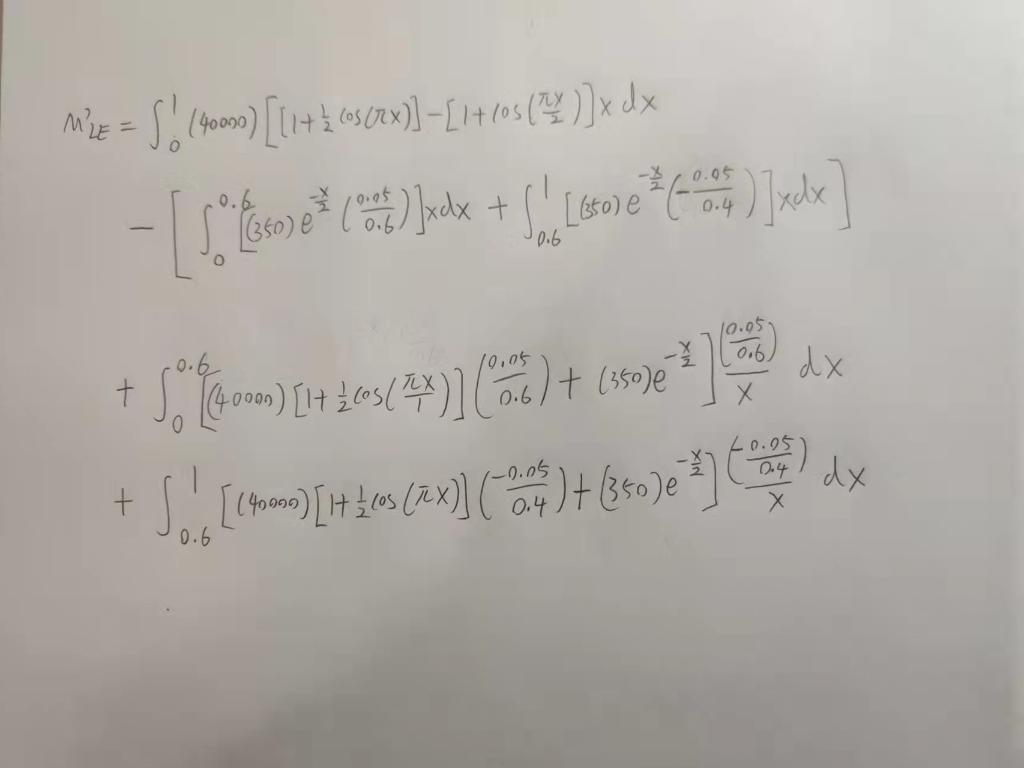 M'LE = ∫₀¹ (40000) [[1+½ cos(πx)] − [1+cos(πx/2)]] x dx
− [ ∫₀^0.6 [(350) e^(−x/2) (0.05/0.6)] x dx + ∫_0.6^1 [(350) e^(−x/2) (−0.05/0.4)] x dx ]
+ ∫₀^0.6 [(40000) [1+½ cos(πx/1)] (0.05/0.6) + (350) e^(−x/2)] (0.05/0.6)/x dx
+ ∫_0.6^1 [(40000) [1+½ cos(πx)] (−0.05/0.4) + (350) e^(−x/2)] (−0.05/0.4)/x dx